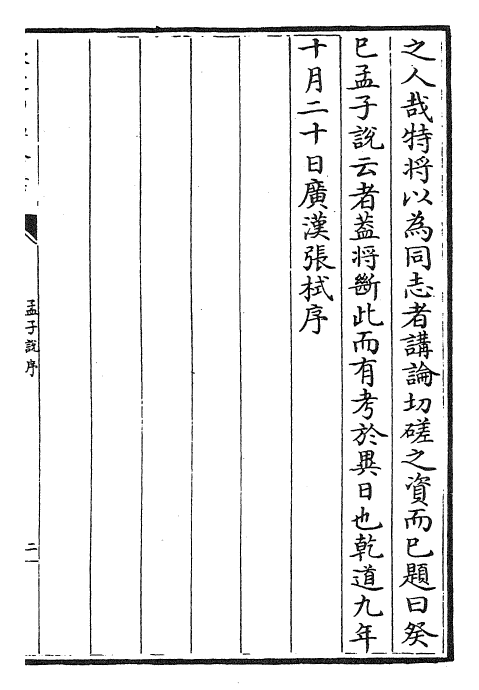 之人哉特将以為同志者講論切磋之資而已題曰癸
巳孟子說云者葢将斷此而有考於異日也乾道九年
十月二十日廣漢張栻序
孟子說序
二